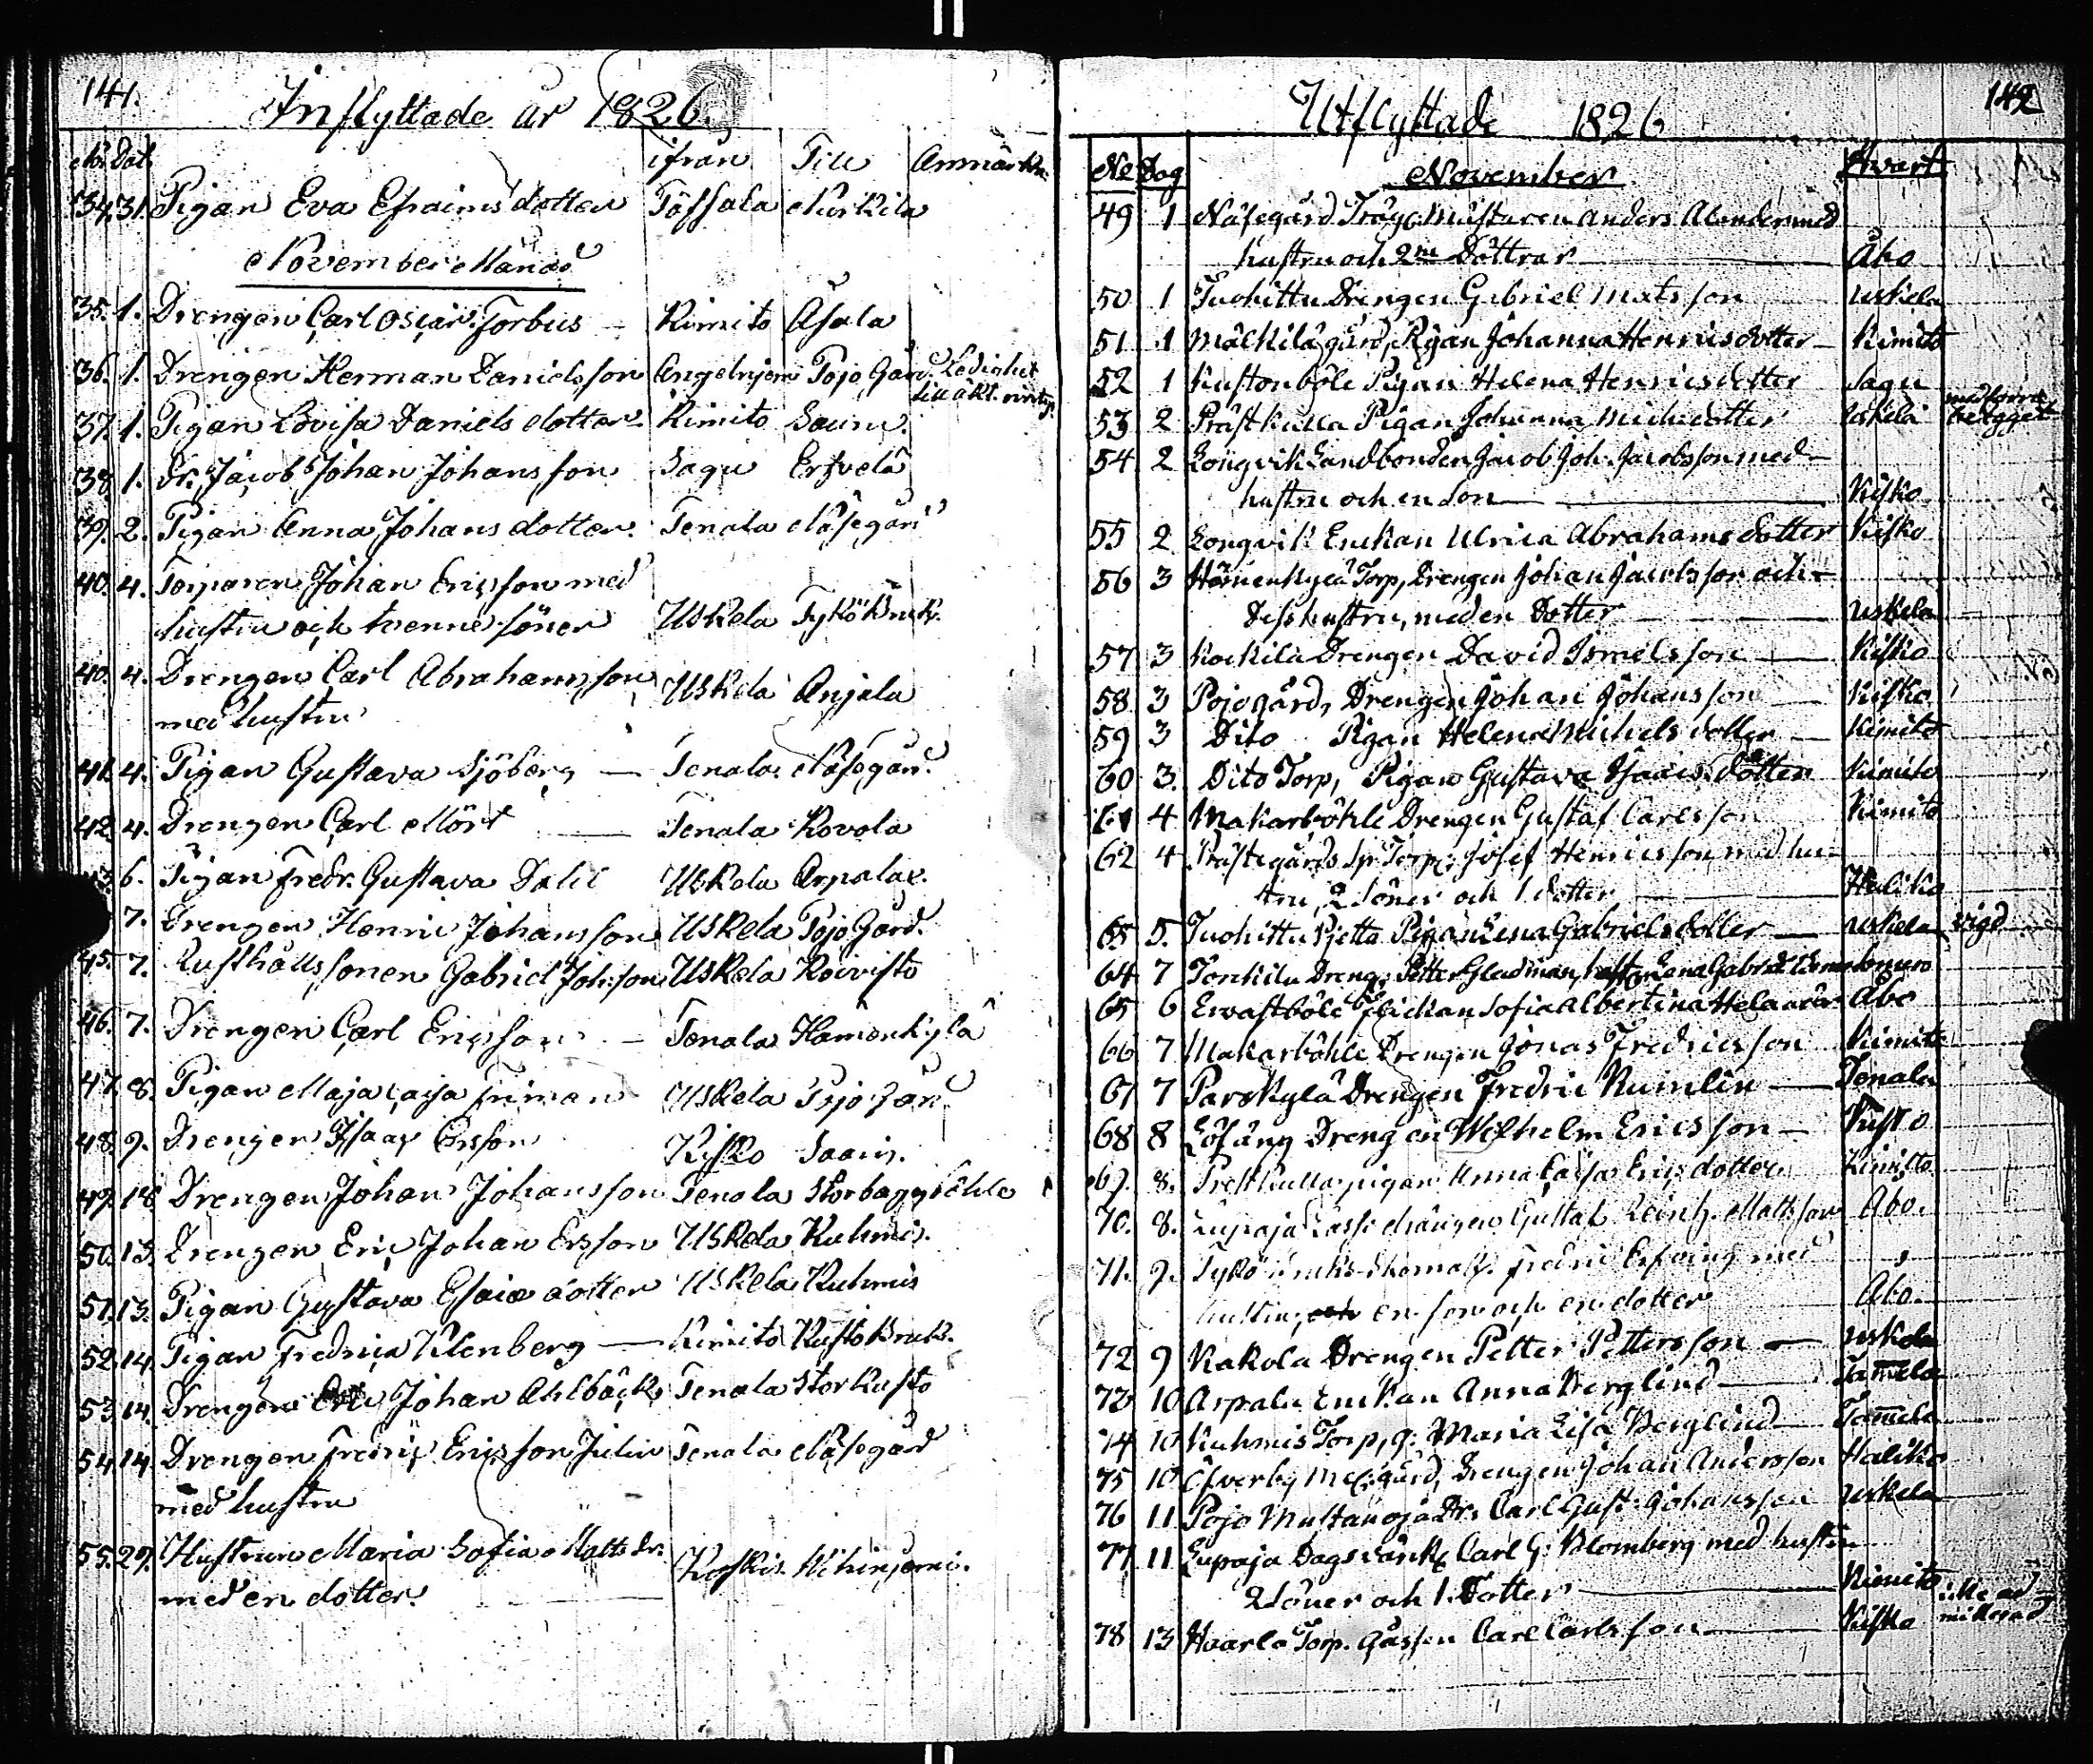 141.
Inflyttade år 1826.
No. Dat. ifrån Till Anmärkn.
34. 31. Pigan Eva Efraims dotter Töfsala Nurkila
November Månad
35. 1. Drengen Carl Oscar Forbus – Kimito Åsala
36. 1. Drengen Herman Danielsson Angelnjemi Pojo Gård. Ledighet
till äkt.
37. 1. Pigan Lovisa Daniels dotter Kimito
38. 1. Dr. Jacob Johan Johansson Sagu
39. 2. Pigan Anna Johans dotter. Tenala Näsegård
40. 4. Torparen Johan Ericsson med
hustru och tvenne söner Uskela Tykö Bruk.
40. 4. Drengen Carl Abrahamsson Uskela Anjala
med hustru
41. 4. Pigan Gustava Sjöberg — Tenala Näsegård.
42. 4. Drengen Carl Mört — Tenala Rovola
6. Pigan Fredr. Gustava Dahl Uskela Arpalax.
7. Drengen Henric Johansson Uskela Pojo Gård.
45. 7. Rusthålls sonen Gabriel Joh:son Uskela Koivisto
46. 7. Drengen Carl Ericsson – Tenala Hamenkylä
47. 8. Pigan Maja Caisa Friman Uskela Pojo gård
48. 9. Drengen Isaac Ersson Kisko Saaris.
49. 10 Drengen Johan Johansson Tenala Storbaggböhle
50. 13. Drengen Eric Johan Ersson Uskela Kuhmis.
51. 13. Pigan Gustava Esaiæ dotter Uskela Kuhmis
52. 14. Pigan Fredrica Wilenberg — Kimito Kusto Bruk.
53. 14. Drengen Johan Ahlbäck Tenala Storkusto
54. 14. Drengen Fredric Ericsson Julin Tenala Näsegård
med hustru
55. 29. Hustrun Maria Sofia Matts dr. Koskis
med en dotter.
142
Utflyttade 1826
No Dag November Hvart
49 1 Näsegård Träg:mästaren Anders Alander med
hustru och 2ne Döttrar — Åbo
50 1 Tuohittu Drengen Gabriel Matsson Uskela
51 1 Mälkilä gård, Pigan Johanna Henricsdotter – Kimito
52 1 Kustonböle Pigan Helena Henricsdotter Sagu
53 2 Prästkulla Pigan Johanna Michelsdotter Uskela
54 2 Långvik Landbonden Jacob Joh. Jacobsson med
hustru och en Son — Kisko
55 2 Långvik Enckan Ulrica Abrahams dotter Kisko
56 3 Hämenkylä Torp, Drengen Johan Jacobsson och
Dess hustru, med en Dotter — Uskela
57 3 Kockila Drengen David Ismelsson — Kisko
58 3 Pojogård, Drengen Johan Johansson — Kisko
59 3 Dito Pigan Helena Michels dotter — Kimito
60 3. Dito Torp, Pigan Gustava Isaacs dotter Kimito
61 4 Makarböhle Drengen Gustaf Carlsson Kimito
62 4 Prästegårds Torp: Josef Henricsson med hu-
stru, 2 Söner och 1 dotter — Haliko
63 5. Tuohittu Pjetta Pigan Lena Gabriels dotter — Uskela vigd
64 7 Torkkila Dreng. Petter Gladman, hustr. Lena Gabrielsd. Bromarf
65 6 Ervastböle Flickan Sofia Albertina Helander Åbo
66 7 Makarböhle Drengen Jonas Fredricsson Kimito
67 7 Parskylä Drengen Fredric Numlin — Tenala
68 8 Löfäng Drengen Wilhelm Ericsson – Kusto
69. 8. Prestkulla pigan Anna Caisa Erics dotter Kimito
70. 8. Lupaja Gustaf Reinh. Mattsson Åbo.
71. 9. Tykö Bruks Skomak. Fredric Erfving med
hustru, en son och en dotter Åbo.
72 9 Kakola Drengen Petter Pettersson — Uskela
73 10 Arpala Enckan Anna Berglind — Tamela
74 10 Kuhmis Torp, q. Maria Lisa Berglind — Tamela
75 10 Öfverby gård, Drengen Johan Andersson Haliko
76 11 Pojo Mustanoja Dr: Carl Gust: Johansson Uskela
77. 11 Lupaja Dagsvärk: Carl G: Blomberg med hustru
2 Söner och 1. Dotter — Kimito
78 13 Haarla Torp. Gåssen Carl Carlsson — Kisko